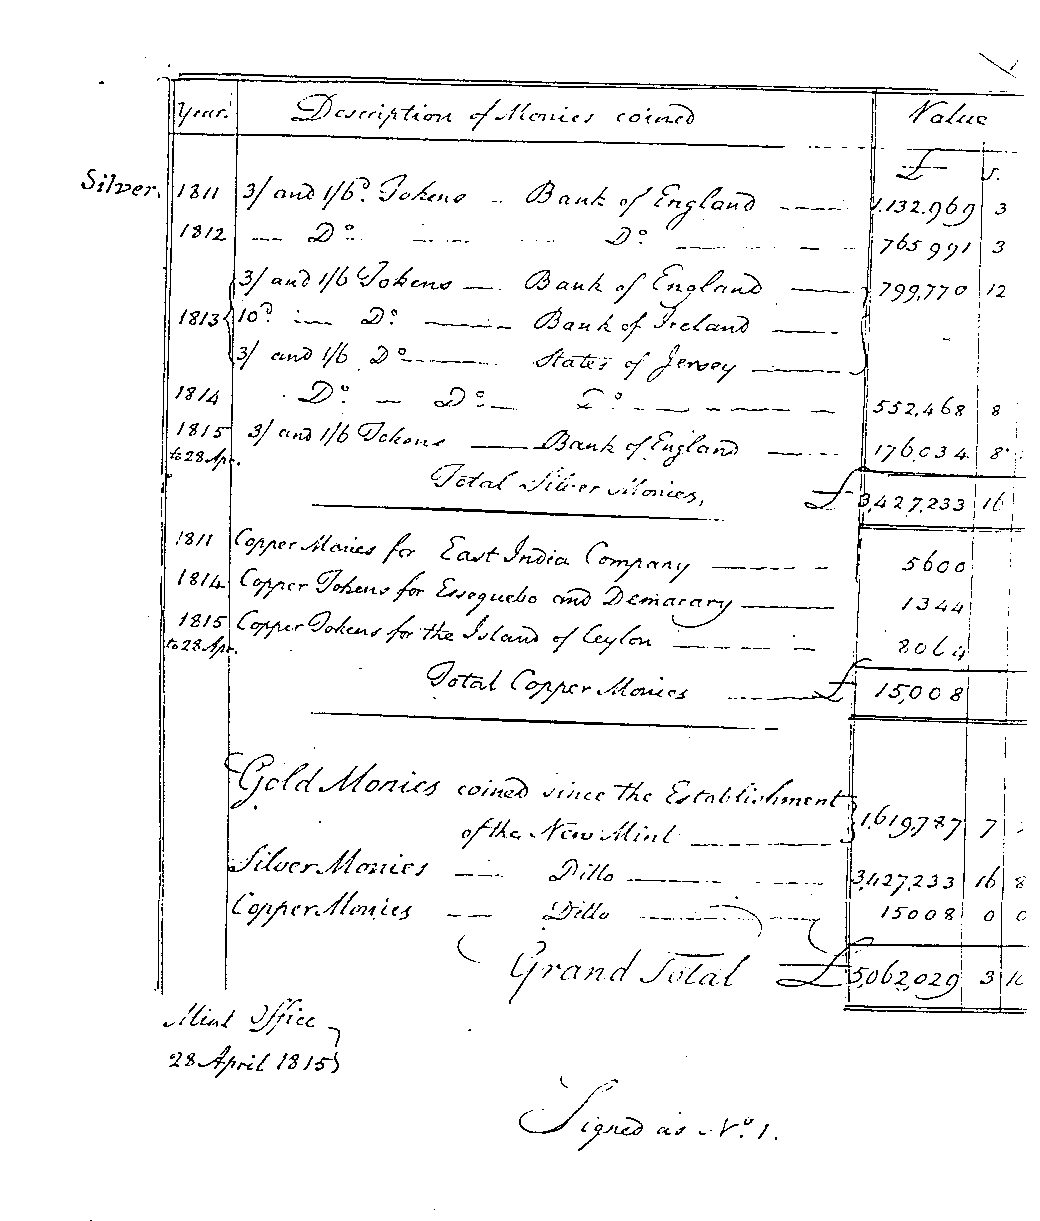 Year. Description of Monies coined Value
£ s.
Silver. 1811 3/ and 1/6ᴰ. Tokens – Bank of England —— 1,132,969 3
1812 — Dº. —— — Dº —— — — 765,991 3
3/ and 1/6 Tokens — Bank of England —— 799,770 12
1813 10ᴰ. — Dº —— Bank of Ireland ——
3/ and 1/6 Dº —— States of Jersey ——
1814 Dº. — Dº. — Dº. — — — — 552,468 8
1815 3/ and 1/6 Tokens —— Bank of England —— 176,034 8
to 28 Apr.
Total Silver Monies, £ 3,427,233 16
1811 Copper Monies for East India Company —— 5600
1814 Copper Tokens for Essequebo and Demarary —— 1344
1815 Copper Tokens for the Island of Ceylon — — — 8064
to 28 Apr.
Total Copper Monies —— £ 15,008
Gold Monies coined since the Establishment
of the New Mint —— 1,619,787 7
Silver Monies — Ditto —— 3,427,233 16 8
Copper Monies — Ditto —— 15008 0 0
Grand Total £ 5,062,029 3
Mint Office
28 April 1815
Signed as Nº. 1.